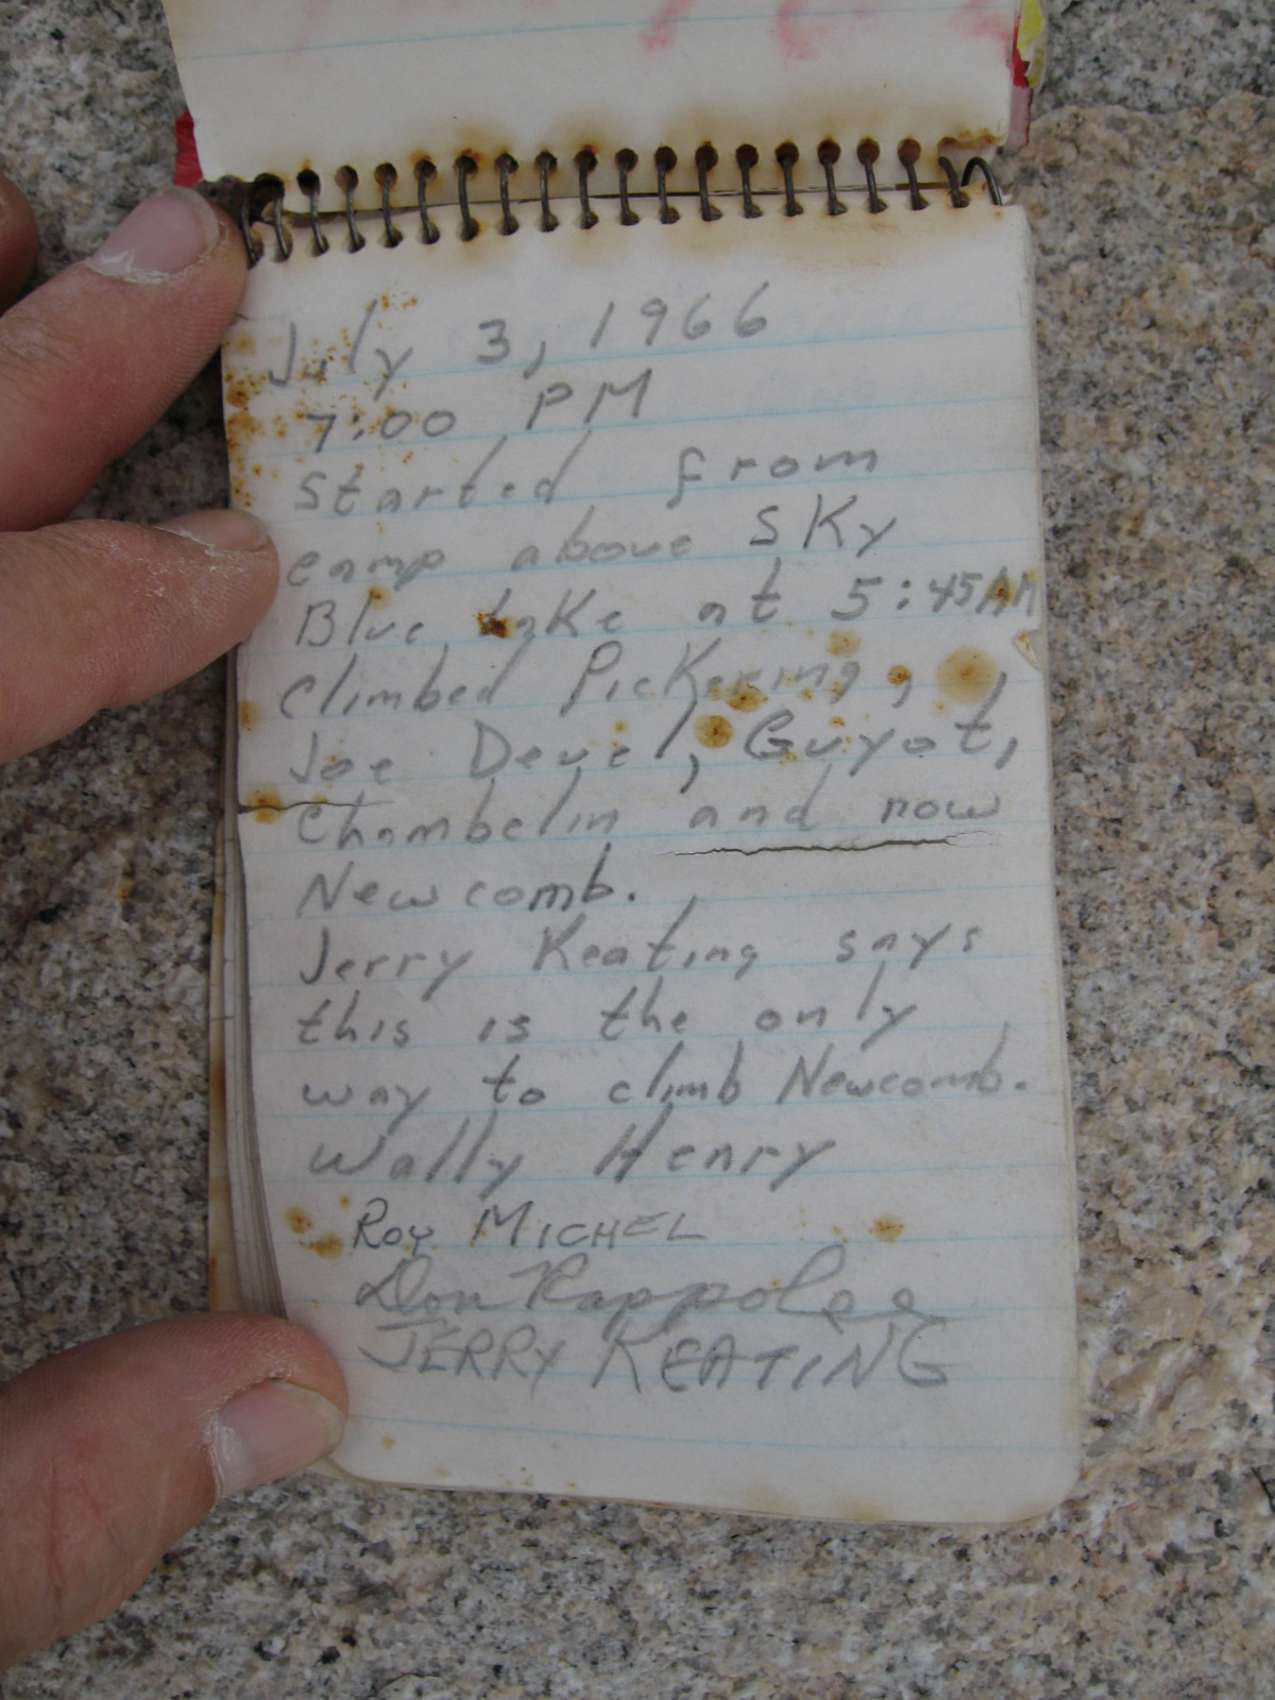 July 3, 1966
7:00 PM
Started from
camp above Sky
Blue Lake at 5:45AM
climbed Pickering,
Joe Devel, Guyot,
Chambelin and now
Newcomb.
Jerry Keating says
this is the only
way to climb Newcomb.
Wally Henry
ROY MICHEL
Don Rappolee
JERRY KEATING